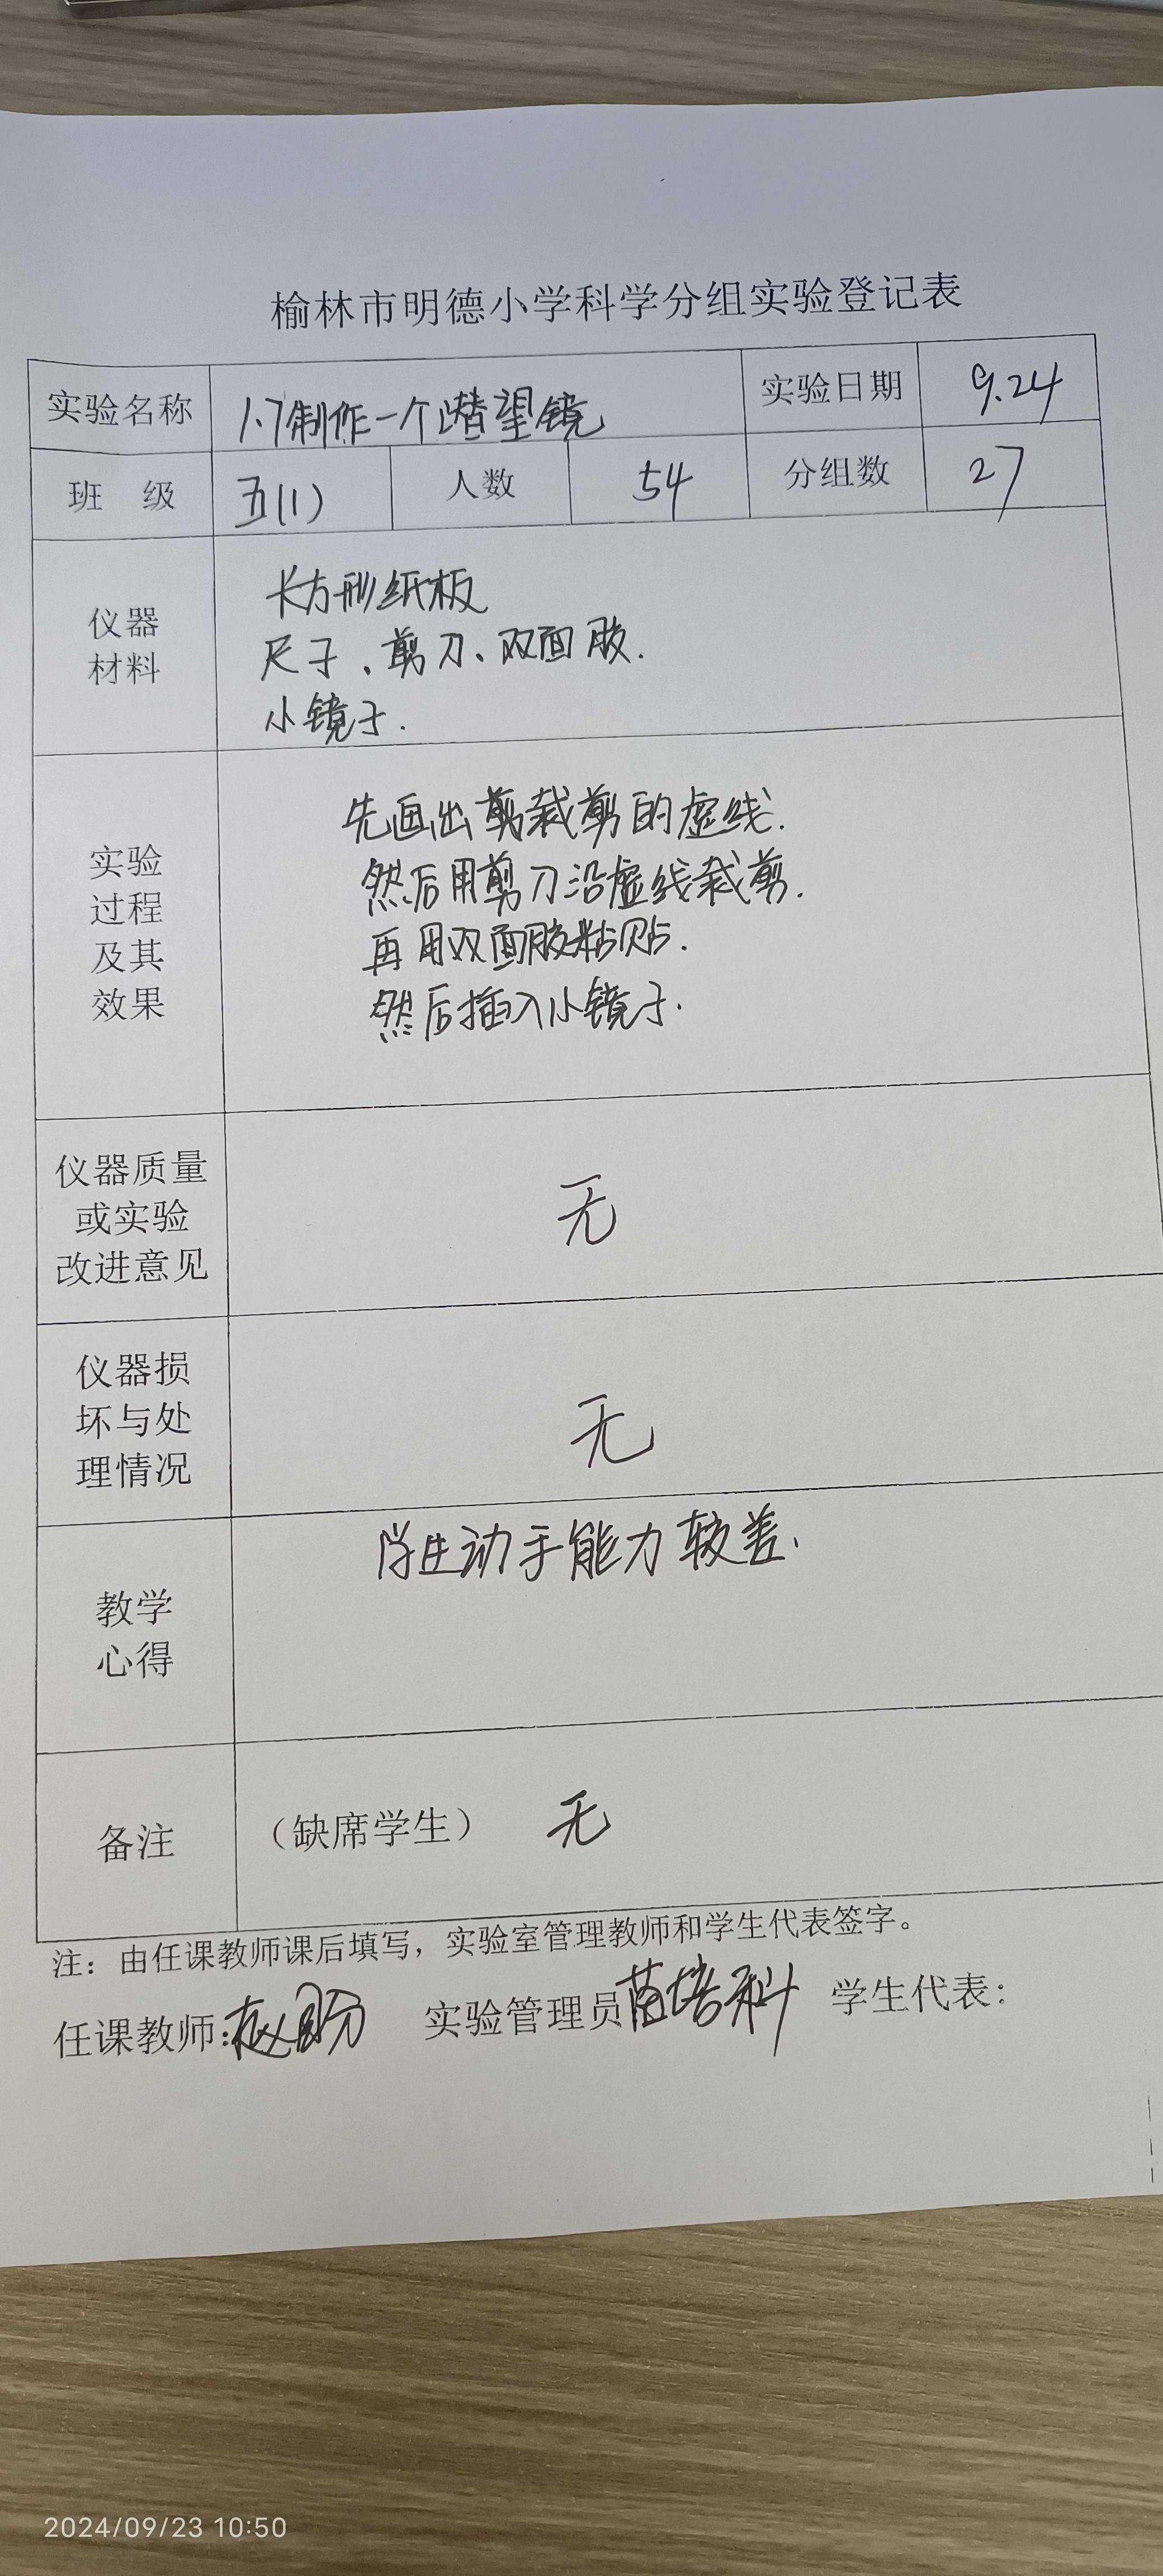 榆林市明德小学科学分组实验登记表
实验名称 1.7制作一个潜望镜 实验日期 9.24
班 级 五(1) 人数 54 分组数 27
仪器
材料
长方形纸板
尺子、剪刀、双面胶.
小镜子.
实验
过程
及其
效果
先画出剪裁剪的虚线.
然后用剪刀沿虚线裁剪.
再用双面胶粘贴.
然后插入小镜子.
仪器质量
或实验
改进意见
无
仪器损
坏与处
理情况
无
教学
心得
学生动手能力较差.
备注 （缺席学生） 无
注：由任课教师课后填写，实验室管理教师和学生代表签字。
任课教师：赵盼 实验管理员苗培科 学生代表：
2024/09/23 10:50